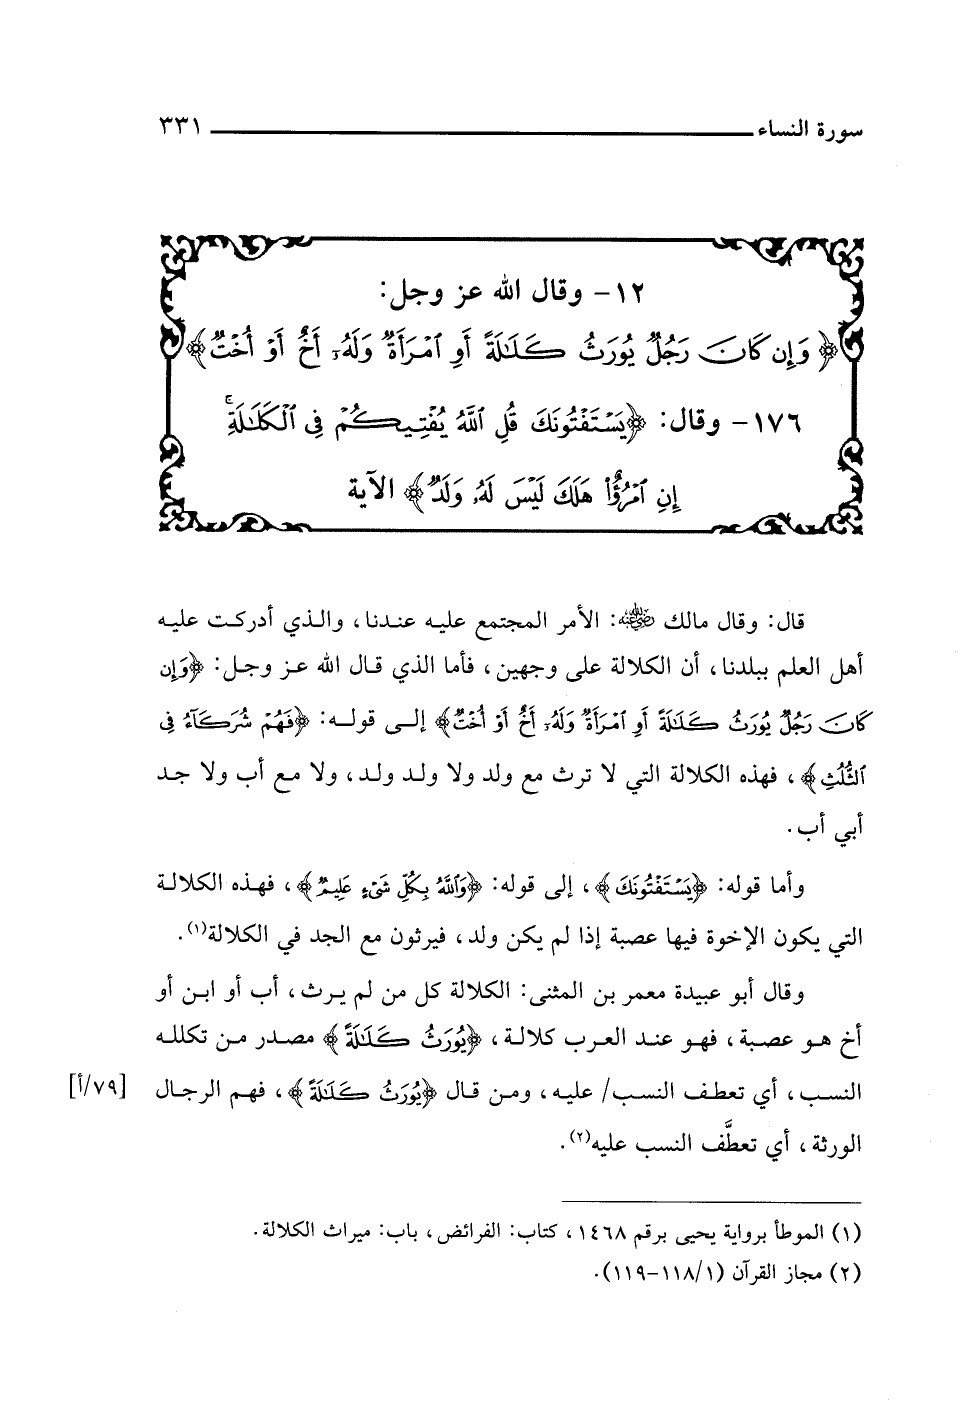 سورة النساء ٣٣١
١٢- وقال الله عز وجل:
﴿وَإِن كَانَ رَجُلٌ يُورَثُ كَلَٰلَةً أَوِ ٱمْرَأَةٌ وَلَهُۥٓ أَخٌ أَوْ أُخْتٌ﴾
١٧٦- وقال: ﴿يَسْتَفْتُونَكَ قُلِ ٱللَّهُ يُفْتِيكُمْ فِى ٱلْكَلَٰلَةِ ۚ
إِنِ ٱمْرُؤٌا۟ هَلَكَ لَيْسَ لَهُۥ وَلَدٌ﴾ الآية
قال: وقال مالك رضي الله عنه: الأمر المجتمع عليه عندنا، والذي أدركت عليه
أهل العلم ببلدنا، أن الكلالة على وجهين، فأما الذي قال الله عز وجل: ﴿وَإِن
كَانَ رَجُلٌ يُورَثُ كَلَٰلَةً أَوِ ٱمْرَأَةٌ وَلَهُۥٓ أَخٌ أَوْ أُخْتٌ﴾ إلى قوله: ﴿فَهُمْ شُرَكَآءُ فِى
ٱلثُّلُثِ﴾، فهذه الكلالة التي لا ترث مع ولد ولا ولد ولد، ولا مع أب ولا جد
أبي أب.
وأما قوله: ﴿يَسْتَفْتُونَكَ﴾، إلى قوله: ﴿وَٱللَّهُ بِكُلِّ شَىْءٍ عَلِيمٌ﴾، فهذه الكلالة
التي يكون الإخوة فيها عصبة إذا لم يكن ولد، فيرثون مع الجد في الكلالة(١).
وقال أبو عبيدة معمر بن المثنى: الكلالة كل من لم يرث، أب أو ابن أو
أخ هو عصبة، فهو عند العرب كلالة، ﴿يُورَثُ كَلَٰلَةً﴾ مصدر من تكلله
النسب، أي تعطف النسب/ عليه، ومن قال ﴿يُورَثُ كَلَٰلَةً﴾، فهم الرجال [٧٩/أ]
الورثة، أي تعطَّف النسب عليه(٢).
(١) الموطأ برواية يحيى برقم ١٤٦٨، كتاب: الفرائض، باب: ميراث الكلالة.
(٢) مجاز القرآن (١/ ١١٨-١١٩).